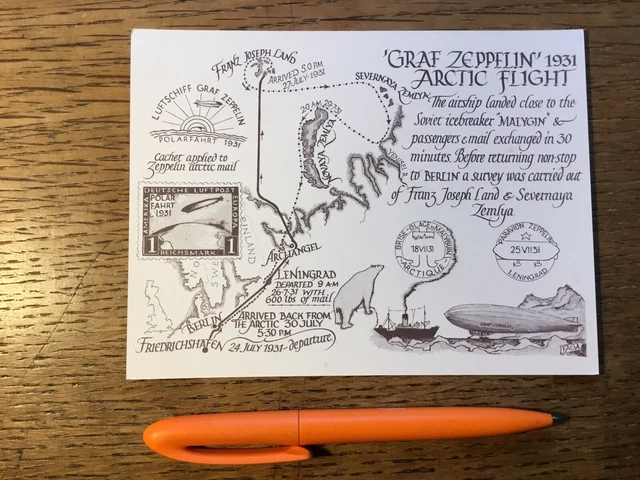 'GRAF ZEPPELIN' 1931
ARCTIC FLIGHT
The airship landed close to the
Soviet icebreaker "MALYGIN" &
passengers & mail exchanged in 30
minutes. Before returning non-stop
to BERLIN a survey was carried out
of Franz Joseph Land & Severnaya
Zemlya
FRANZ JOSEPH LAND
ARRIVED 5.0 P.M.
27·JULY·1931
SEVERNAYA ZEMLYA
NOVAYA ZEMLYA
LUFTSCHIFF GRAF ZEPPELIN
POLARFAHRT 1931
Cachet applied to
Zeppelin arctic mail
DEUTSCHE LUFTPOST
AMERIKA
EUROPA
POLAR
FAHRT
1931
1 REICHSMARK 1
FINLAND
ARCHANGEL
LENINGRAD
DEPARTED 9 AM
26·7·31 WITH
600 lbs of mail
BERLIN
ARRIVED BACK FROM
THE ARCTIC 30 JULY
5·30 P.M.
FRIEDRICHSHAFEN
24 JULY 1931-departure
18VII31
ARCTIQUE
ZEPPELIN
25VII31
LENINGRAD
GRAF ZEPPELIN